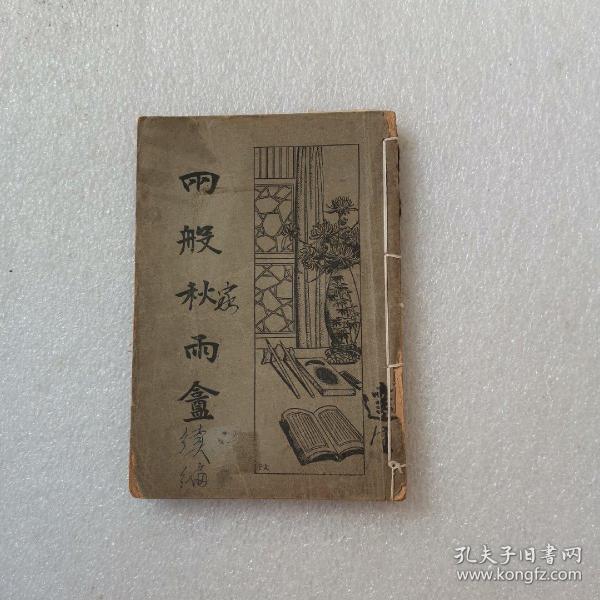 兩般秋雨盦
续編
孔夫子旧書网
www.kongfz.com